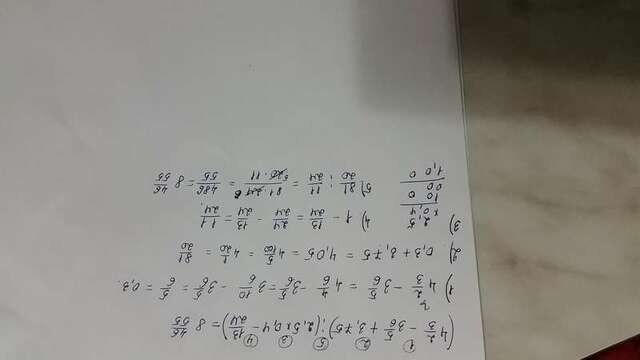 ① ② ⑤ ③ ④
(4 2/3 - 3 5/6 + 3,75) : (2,5 × 0,4 - 13/24) = 8 46/55
1) 4 2/3 - 3 5/6 = 4 4/6 - 3 5/6 = 3 10/6 - 3 5/6 = 5/6 = 0,3.
2) 0,3 + 3,75 = 4,05 = 4 5/100 = 4 1/20 = 81/20
3) 2,5
× 0,4
1 0 0
0 0
1,0 0
4) 1 - 13/24 = 24/24 - 13/24 = 11/24
5) 81/20 : 11/24 = 81·24 6/5 20·11 = 486/55 = 8 46/55